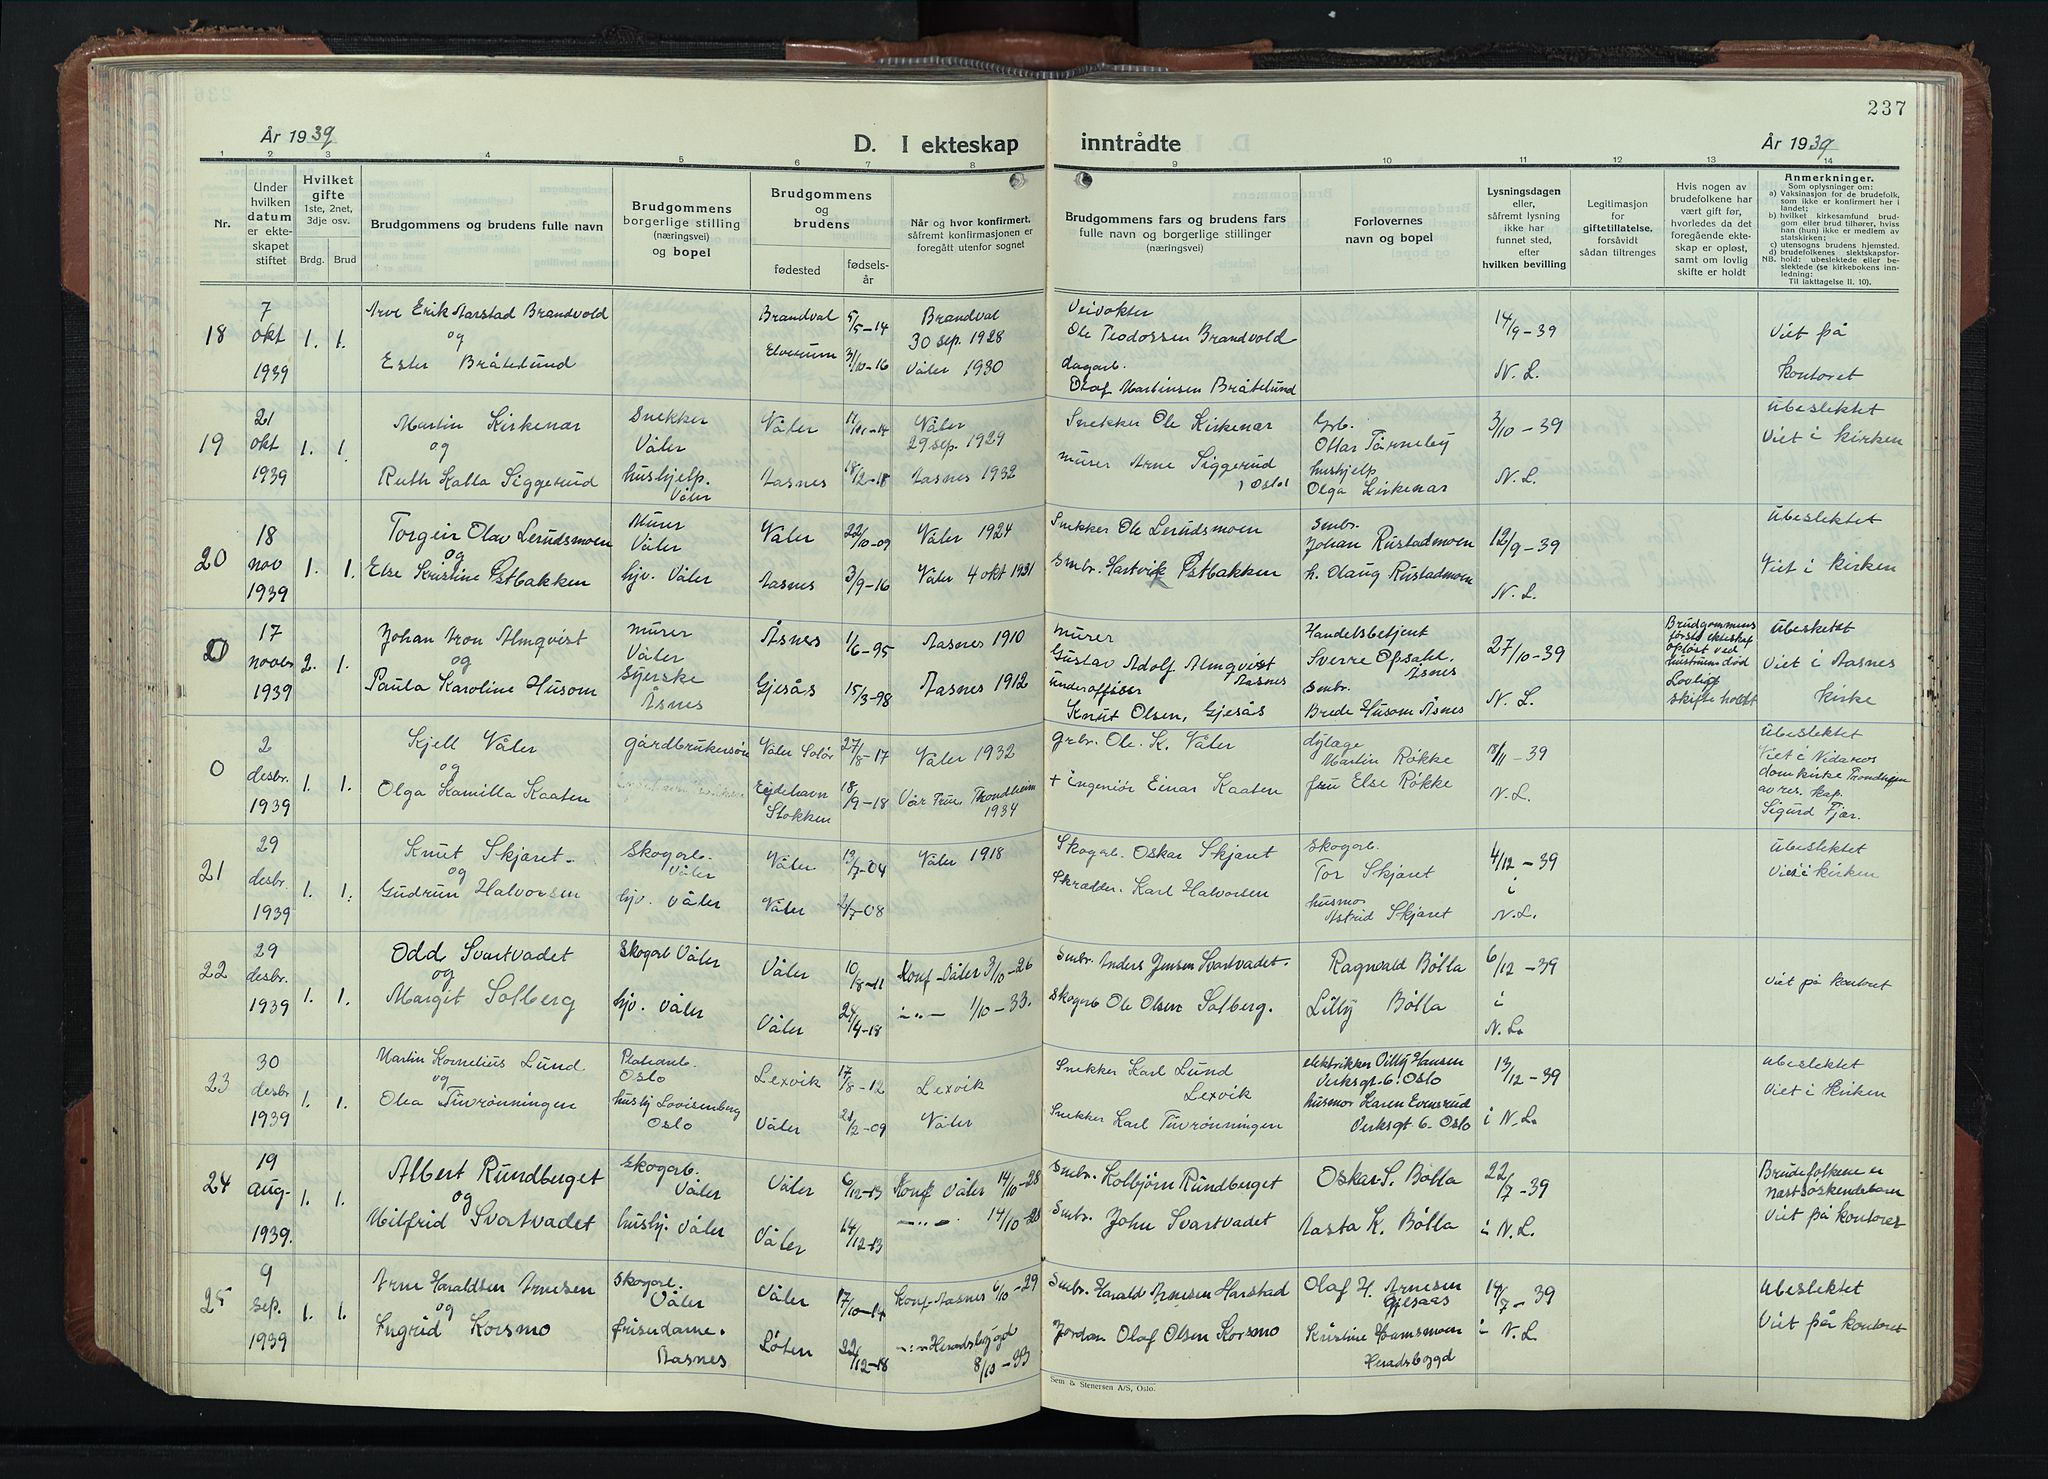 237
År 1939
D. I ekteskap inntrådte
År 1939
1 2 3 4 5 6 7 8 9 10 11 12 13 14
Nr.
Under hvilken datum er ekteskapet stiftet
Hvilket gifte 1ste, 2net, 3dje osv.
Brdg. Brud
Brudgommens og brudens fulle navn
Brudgommens borgerlige stilling (næringsvei) og bopel
Brudgommens og brudens
fødested
fødselsår
Når og hvor konfirmert, såfremt konfirmasjonen er foregått utenfor sognet
Brudgommens fars og brudens fars fulle navn og borgerlige stillinger (næringsvei)
Forlovernes navn og bopel
Lysningsdagen eller, såfremt lysning ikke har funnet sted, efter hvilken bevilling
Legitimasjon for giftetillatelse, forsåvidt sådan tiltrenges
Hvis nogen av brudefolkene har vært gift før, hvorledes da det foregående ekteskap er opløst, samt om lovlig skifte er holdt
Anmerkninger.
Som oplysninger om:
a) Vaksinasjon for de brudefolk, som ikke er konfirmert her i landet;
b) hvilket kirkesamfund brudgom eller brud tilhører, hviss han (hun) ikke er medlem av statskirken;
c) utensogns brudens hjemsted.
d) brudefolkenes slektskapsforhold: ubeslektede eller beslektede (se kirkebokens innledning:
NB.
Til iakttagelse II. 10).
18
7 okt 1939
1. 1.
Arve Erik Aarstad Brandvold
og
Ester Bråtelund
Brandval 5/5-14
Elverum 31/10-16
Brandval 30 sep. 1928
Våler 1930
Veivokter
Ole Teodossen Brandvold
dagarb.
Olaf Martinsen Bråtelund
14/9-39
N. L.
Viet på kontoret
19
21 okt 1939
1. 1.
Martin Kirkenær
og
Ruth Kalla Siggerud
Snekker Våler
hushjelp. Våler
Våler
Aasnes 18/12-18
Våler 29 sep. 1929
Aasnes 1932
Snekker Ole Kirkenær
murer Arne Siggerud, Oslo
Grb. Ottar Tørneby
hushjelp Olga Kirkenær
3/10-39
N. L.
Ubeslektet
Viet i kirken
20
18 nov 1939
1. 1.
Torgeir Olav Lerudsmoen
og
Else Kristine Østbakken
Murer Våler
hjv. Våler
Våler 22/10-09
Aasnes 3/9-16
Våler 1924
Våler 4 okt 1931
Snekker Ole Lerudsmoen
Smbr. Hartvik Østbakken
Smbr. Johan Rustadmoen
h. Olaug Rustadmoen
12/9-39
N. L.
Ubeslektet
Viet i kirken
0
17 novbr 1939
2. 1.
Johan Aron Almqvist
og
Paula Karoline Husom
murer Våler
Syerske Åsnes
Åsnes 1/6-95
Gjesås 15/3-98
Aasnes 1910
Aasnes 1912
murer
Gustav Adolf Almqvist Aasnes
underoffiser
Knut Olsen, Gjesås
Handelsbetjent Sverre Opsahl. Åsnes
Smbr. Brede Husom Åsnes
27/10-39
N. L.
Brudgommens første ekteskap opløst ved hustruens død
Lovlig skifte holdt
Ubeslektet
Viet i Aasnes kirke
0
2 desbr. 1939
1. 1.
Kjell Våler
og
Olga Kamilla Kaaten
gårdbrukersøn
Våler Solør 27/8-17
Eydehavn Stokken 18/9-18
Våler 1932
Vår Frue, Trondheim 1934
Grbr. Ole. K. Våler
+ Ingeniør Einar Kaaten
dyrlæge Martin Røkke
fru Else Røkke
18/11-39
N. L.
Ubeslektet
Viet i Nidaros domkirke Trondheim av res. kap. Sigurd Fjær.
21
29 desbr. 1939
1. 1.
Knut Skjæret
og
Gudrun Halvorsen
Skogarb. Våler
hjv. Våler
Våler 13/7-04
Våler 2/7-08
Våler 1918
Skogarb. Oskar Skjæret
Skrædder. Karl Halvorsen
Skogarb. Tor Skjæret
husmor Astrid Skjæret
4/12-39
i N. L.
Ubeslektet
Viet i kirken
22
29 desbr. 1939
1. 1.
Odd Svartvadet
og
Margit Solberg
Skogarb Våler
hjv. Våler
Våler 10/8-11
Våler 24/4-18
Konf Våler 3/10-26
-"- 1/10-33.
Smbr. Anders Jensen Svartvadet.
Skogarb Ole Olsen Solberg.
Ragnvald Bølla
Lilly Bølla
6/12-39
i N. L.
Viet på kontoret
23
30 desbr 1939
1. 1.
Martin Kornelius Lund
og
Olea Tuvrønningen
Platearb. Oslo
hushj Lovisenberg Oslo
Lexvik 17/8-12
Våler 21/2-09
Lexvik
Våler
Snekker Karl Lund Lexvik
Snekker Karl Tuvrønningen
elektrikker Villy Hansen Verksgt. 6. Oslo
husmor Karen Evensrud Verksgt 6. Oslo
13/12-39
i N. L.
Ubeslektet
Viet i kirken
24
19 Aug. 1939.
1. 1.
Albert Rundberget
og
Milfrid Svartvadet
Skogarb. Våler
hushj. Våler
Våler 6/12-13
Våler 14/12-13
Konf Våler 14/10-28
-"- 14/10-28
Smbr. Kolbjørn Rundberget
Smbr. John Svartvadet
Oskar S. Bølla
Aasta K. Bølla
22/7-39
i N. L.
Brudefolkene er Næstsøskendebarn
Viet på kontoret
25
9 sep. 1939
1. 1.
Arne Haraldsen Arnesen
og
Ingrid Korsmo
Skogarb. Våler
frisørdame. Aasnes
Våler 17/10-14
Løten 22/12-18
Konf Aasnes 6/10-29
-"- Heradsbygd 8/10-33
Smbr. Harald Arnesen Harstad
Jordarb Olaf Olsen Korsmo
Olaf H. Arnesen Gjesaas
Kristine Hamsmoen Heradsbygd
14/7-39
i N. L.
Ubeslektet
Viet på kontoret
Sem & Stenersen A/S, Oslo.